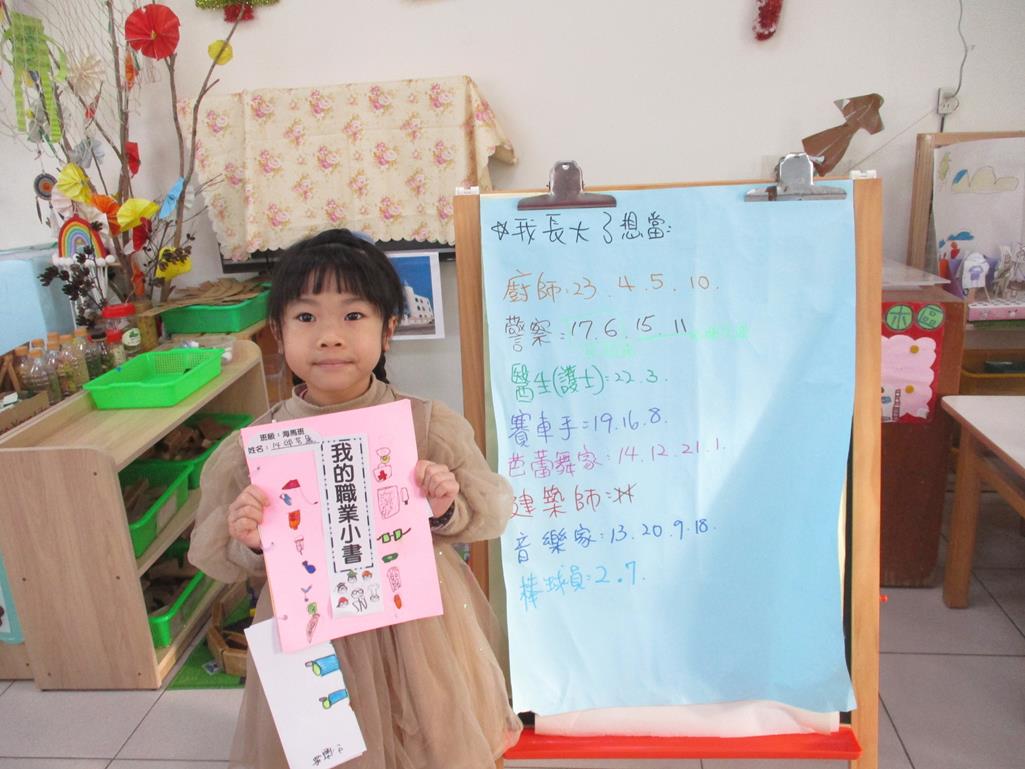 ☆我長大了想當:
廚師:23.4.5.10.
警察:17.6.15.11
醫生(護士):22.3.
賽車手:19.16.8.
芭蕾舞家:14.12.21.1.
建築師:
音樂家:13.20.9.18.
棒球員:2.7.
班級:海馬班
姓名:14
我的職業小書
木品